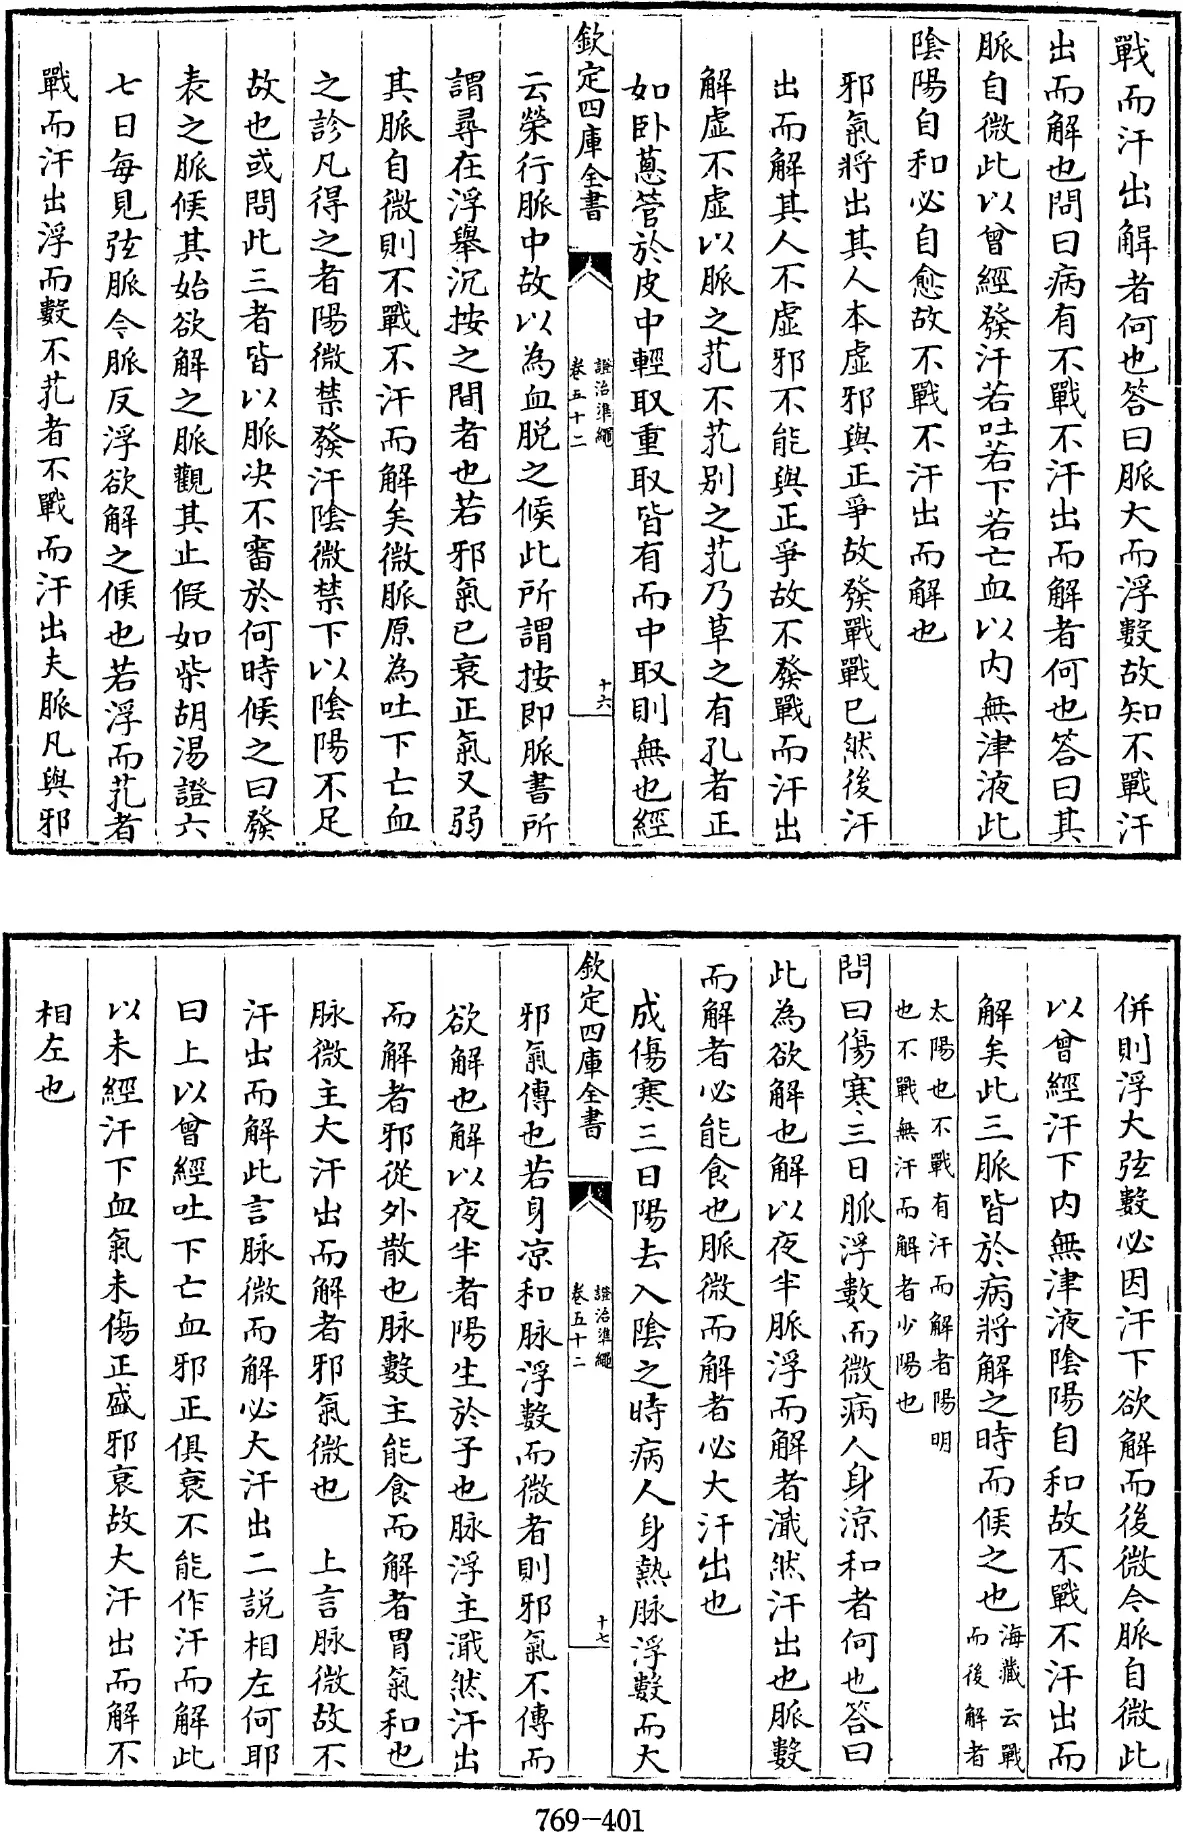 戰而汗出解者何也答曰脈大而浮數故知不戰汗
出而解也問曰病有不戰不汗出而解者何也答曰其
脈自微此以曾經發汗若吐若下若亡血以內無津液此
陰陽自和必自愈故不戰不汗出而解也
邪氣將出其人本虛邪與正爭故發戰戰已然後汗
出而解其人不虛邪不能與正爭故不發戰而汗出
解虛不虛以脈之芤不芤別之芤乃草之有孔者正
如卧蔥管於皮中輕取重取皆有而中取則無也經
欽定四庫全書
證治準繩
卷五十二
十六
云榮行脈中故以為血脫之候此所謂按即脈書所
謂尋在浮舉沉按之間者也若邪氣已衰正氣又弱
其脈自微則不戰不汗而解矣微脈原為吐下亡血
之診凡得之者陽微禁發汗陰微禁下以陰陽不足
故也或問此三者皆以脈決不審於何時候之曰發
表之脈候其始欲解之脈觀其止假如柴胡湯證六
七日每見弦脈今脈反浮欲解之候也若浮而芤者
戰而汗出浮而數不芤者不戰而汗出夫脈凡與邪
併則浮大弦數必因汗下欲解而後微今脈自微此
以曾經汗下內無津液陰陽自和故不戰不汗出而
解矣此三脈皆於病將解之時而候之也海藏云戰
而後解者
太陽也不戰有汗而解者陽明
也不戰無汗而解者少陽也
問曰傷寒三日脈浮數而微病人身涼和者何也答曰
此為欲解也解以夜半脈浮而解者濈然汗出也脈數
而解者必能食也脈微而解者必大汗出也
成傷寒三日陽去入陰之時病人身熱脈浮數而大
欽定四庫全書
證治準繩
卷五十二
十七
邪氣傳也若身涼和脉浮數而微者則邪氣不傳而
欲解也解以夜半者陽生於子也脉浮主濈然汗出
而解者邪從外散也脉數主能食而解者胃氣和也
脉微主大汗出而解者邪氣微也　上言脈微故不
汗出而解此言脉微而解必大汗出二説相左何耶
曰上以曾經吐下亡血邪正俱衰不能作汗而解此
以未經汗下血氣未傷正盛邪衰故大汗出而解不
相左也
769-401